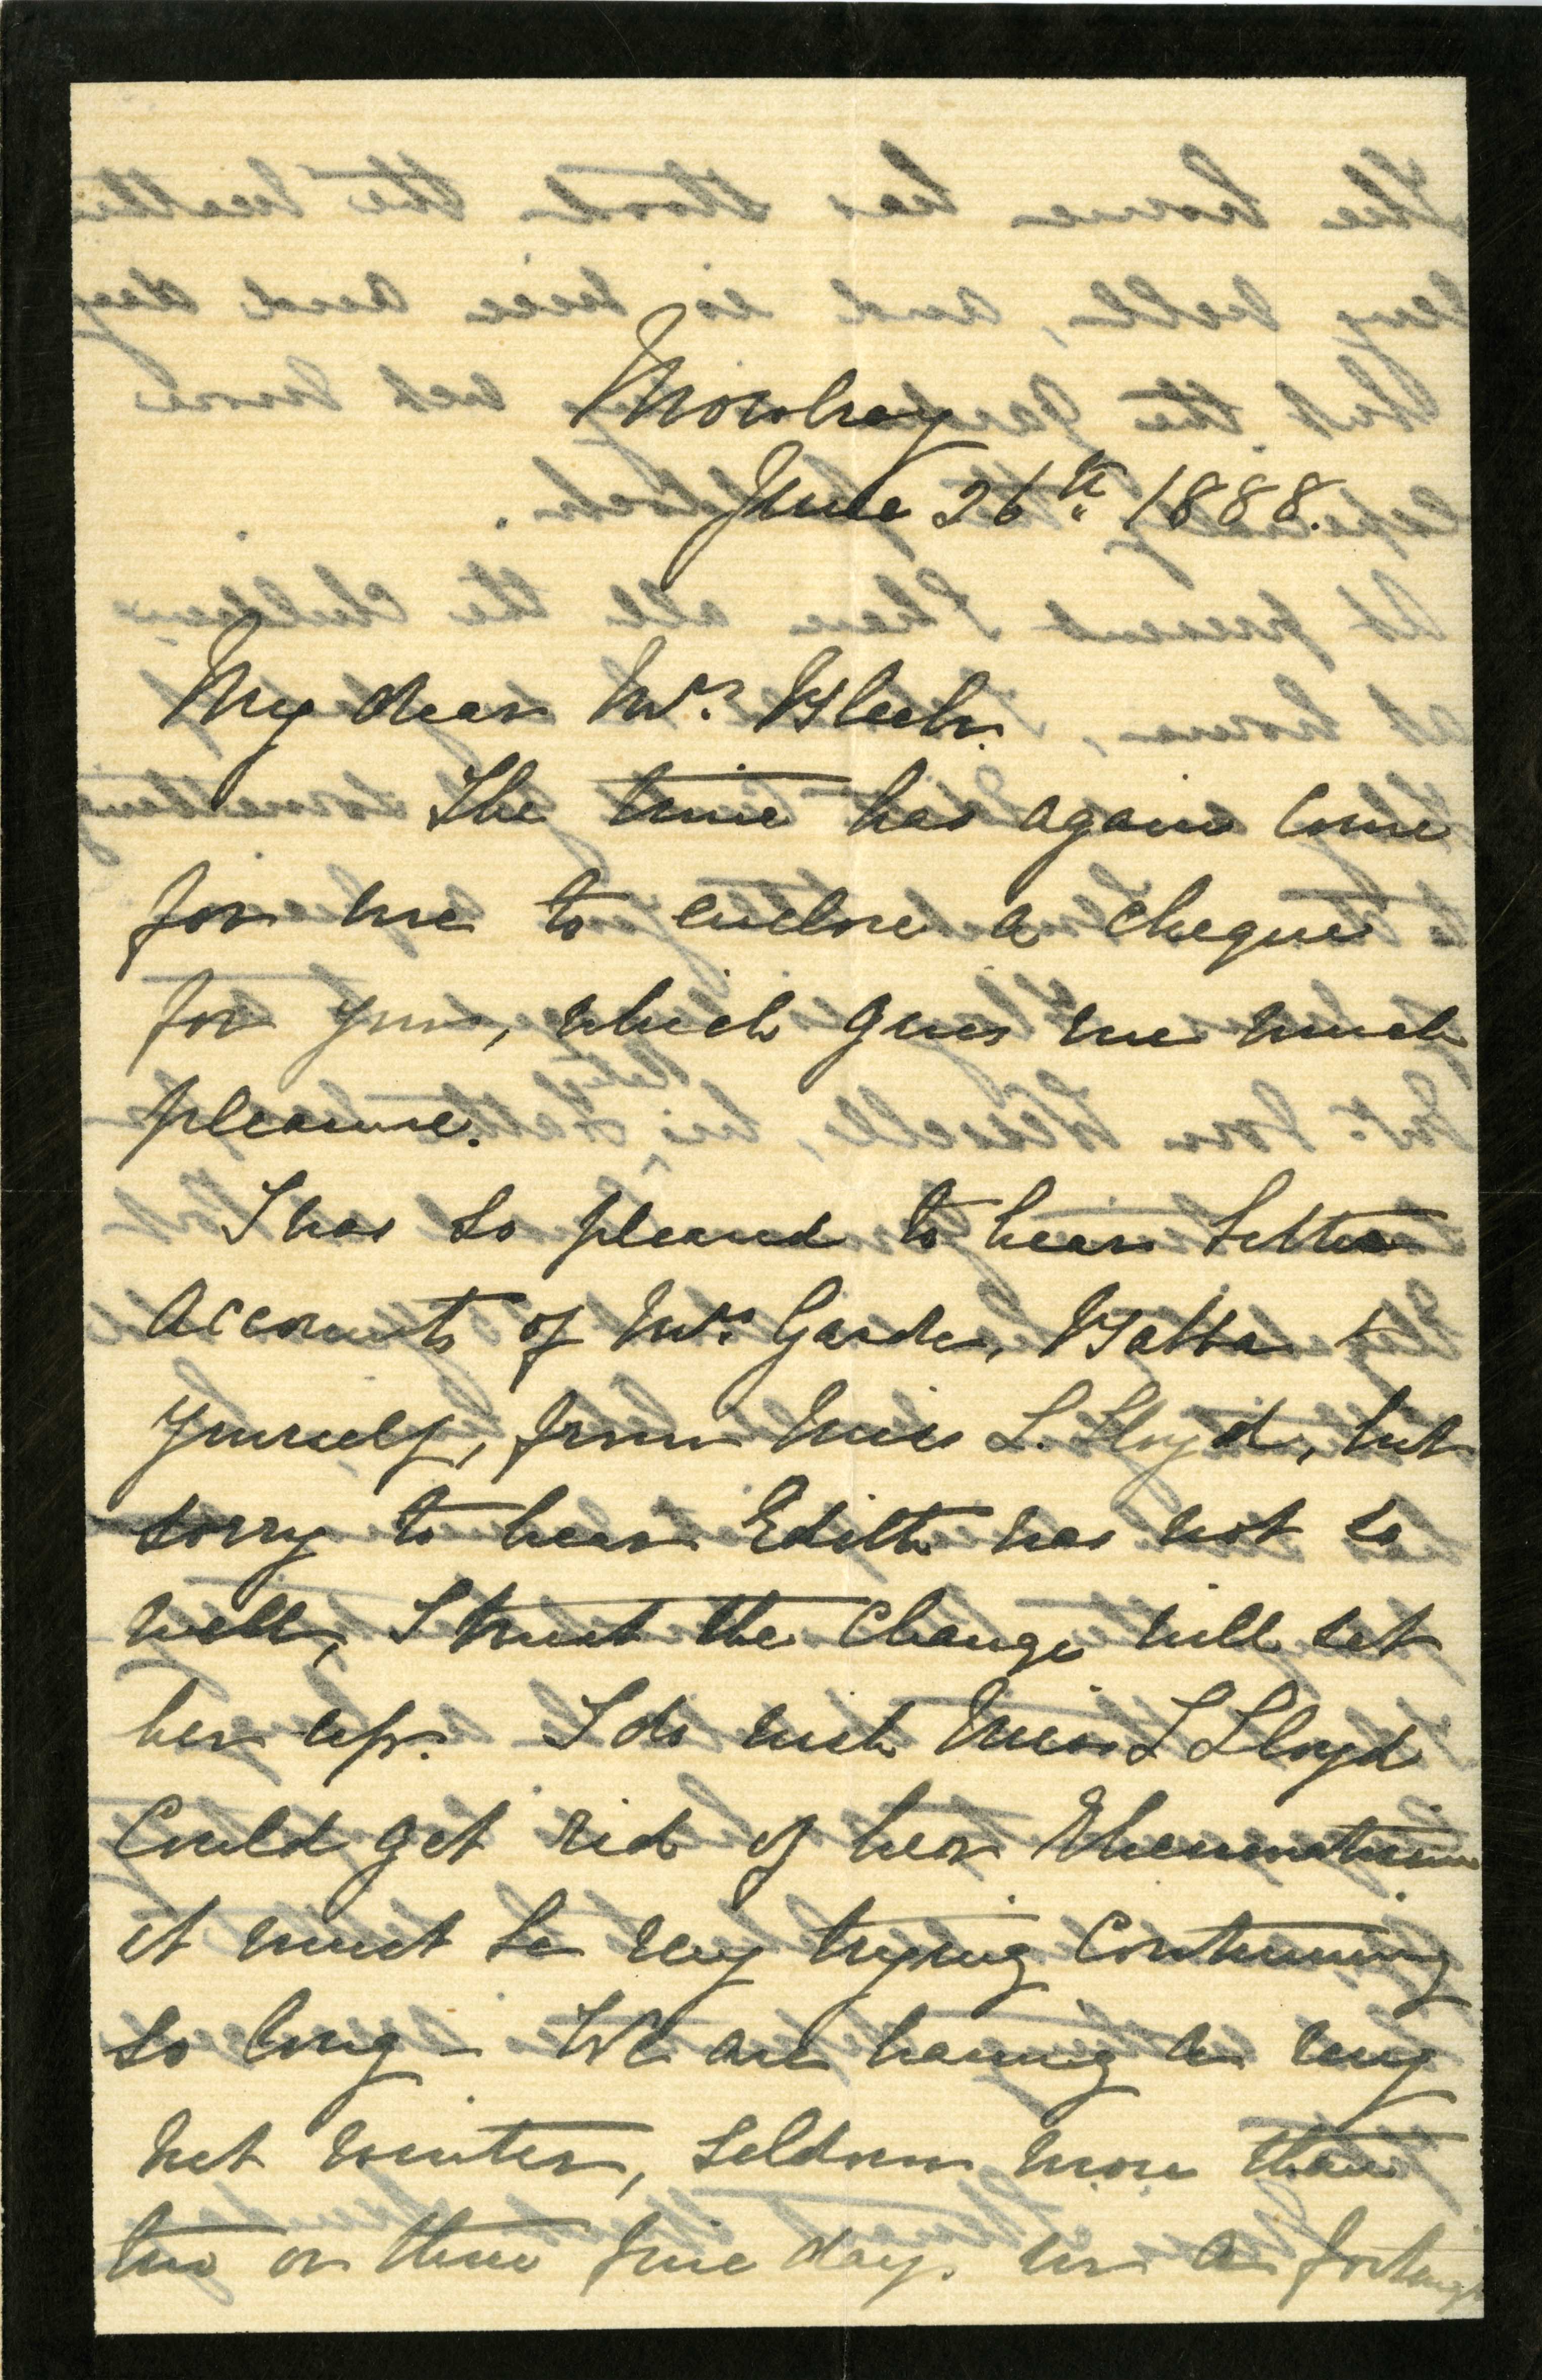 Mowbray
June 26th 1888.
My dear Mrs. Bleek.
The time has again come
for me to enclose a cheque
for you, which gives me much
pleasure.
I was so pleased to hear better
accounts of Mrs. Garde, Batta &
yourself, from Miss L. Lloyd, but
sorry to hear Edith was not so
well, I trust the change will set
her up. I do wish Miss L Lloyd
could get rid of her Rheumatism
it must be very trying continuing
so long – We are having a very
wet winter, seldom more than
two or three fine days in a fortnight